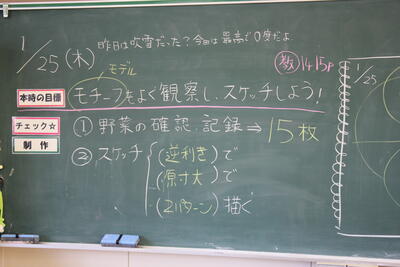 1/25(木) 昨日は吹雪だった?今日は最高で0度だよ
教 14.15P
モデル
本時の目標 モチーフをよく観察し、スケッチしよう!
チェック☆ ①野菜の確認、記録⇒15枚
制作 ②スケッチ (逆利き)で
(原寸大)で
(2パターン)描く
1/25